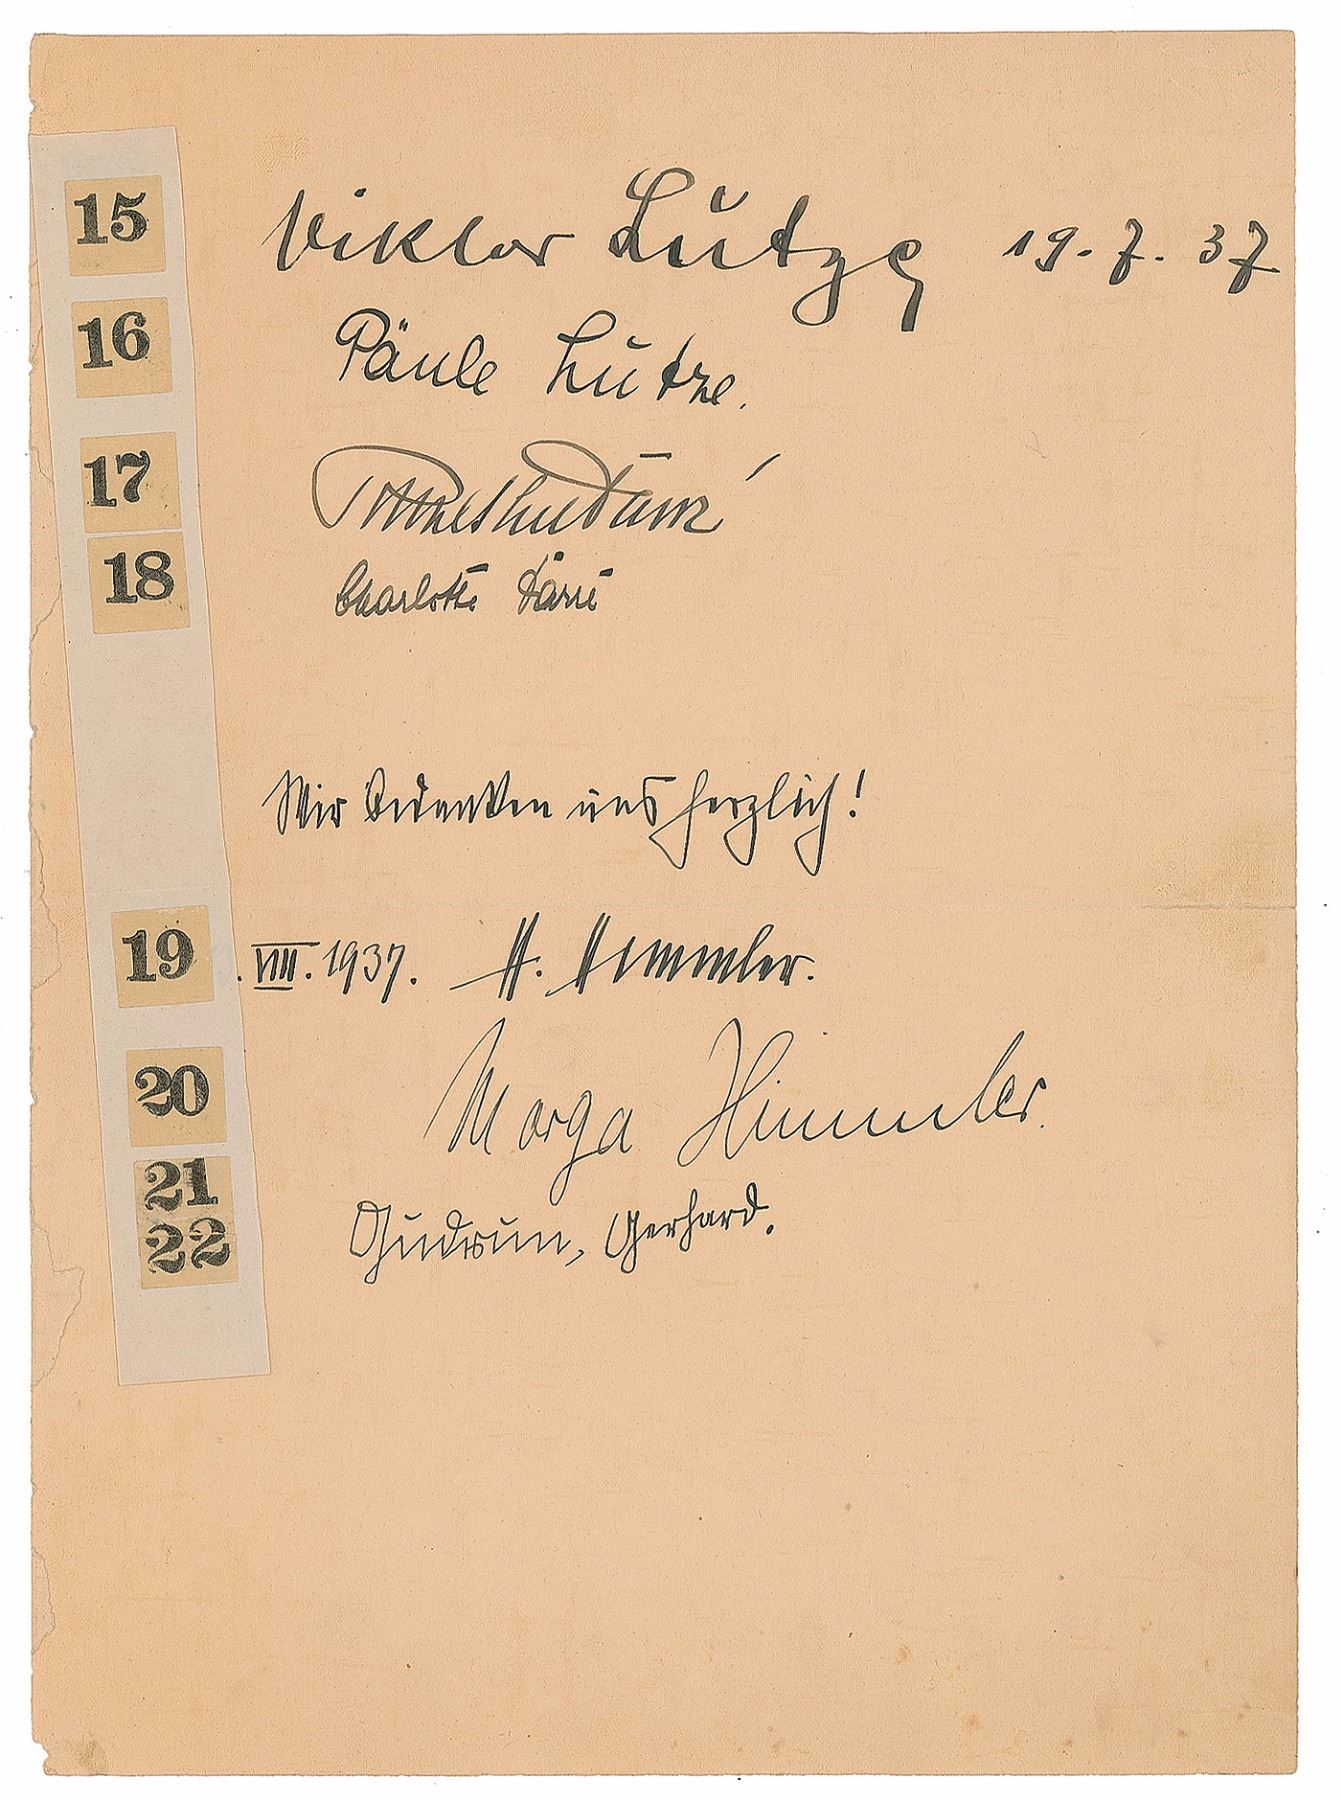 15 Viktor Lutze 19.7.37
16 Paula Lutze.
17 Darré
18 Charlotte Darré
Wir bedanken uns herzlich!
19 . VIII. 1937. H. Himmler.
20 Marga Himmler.
21 Gudrun, Gerhard.
22